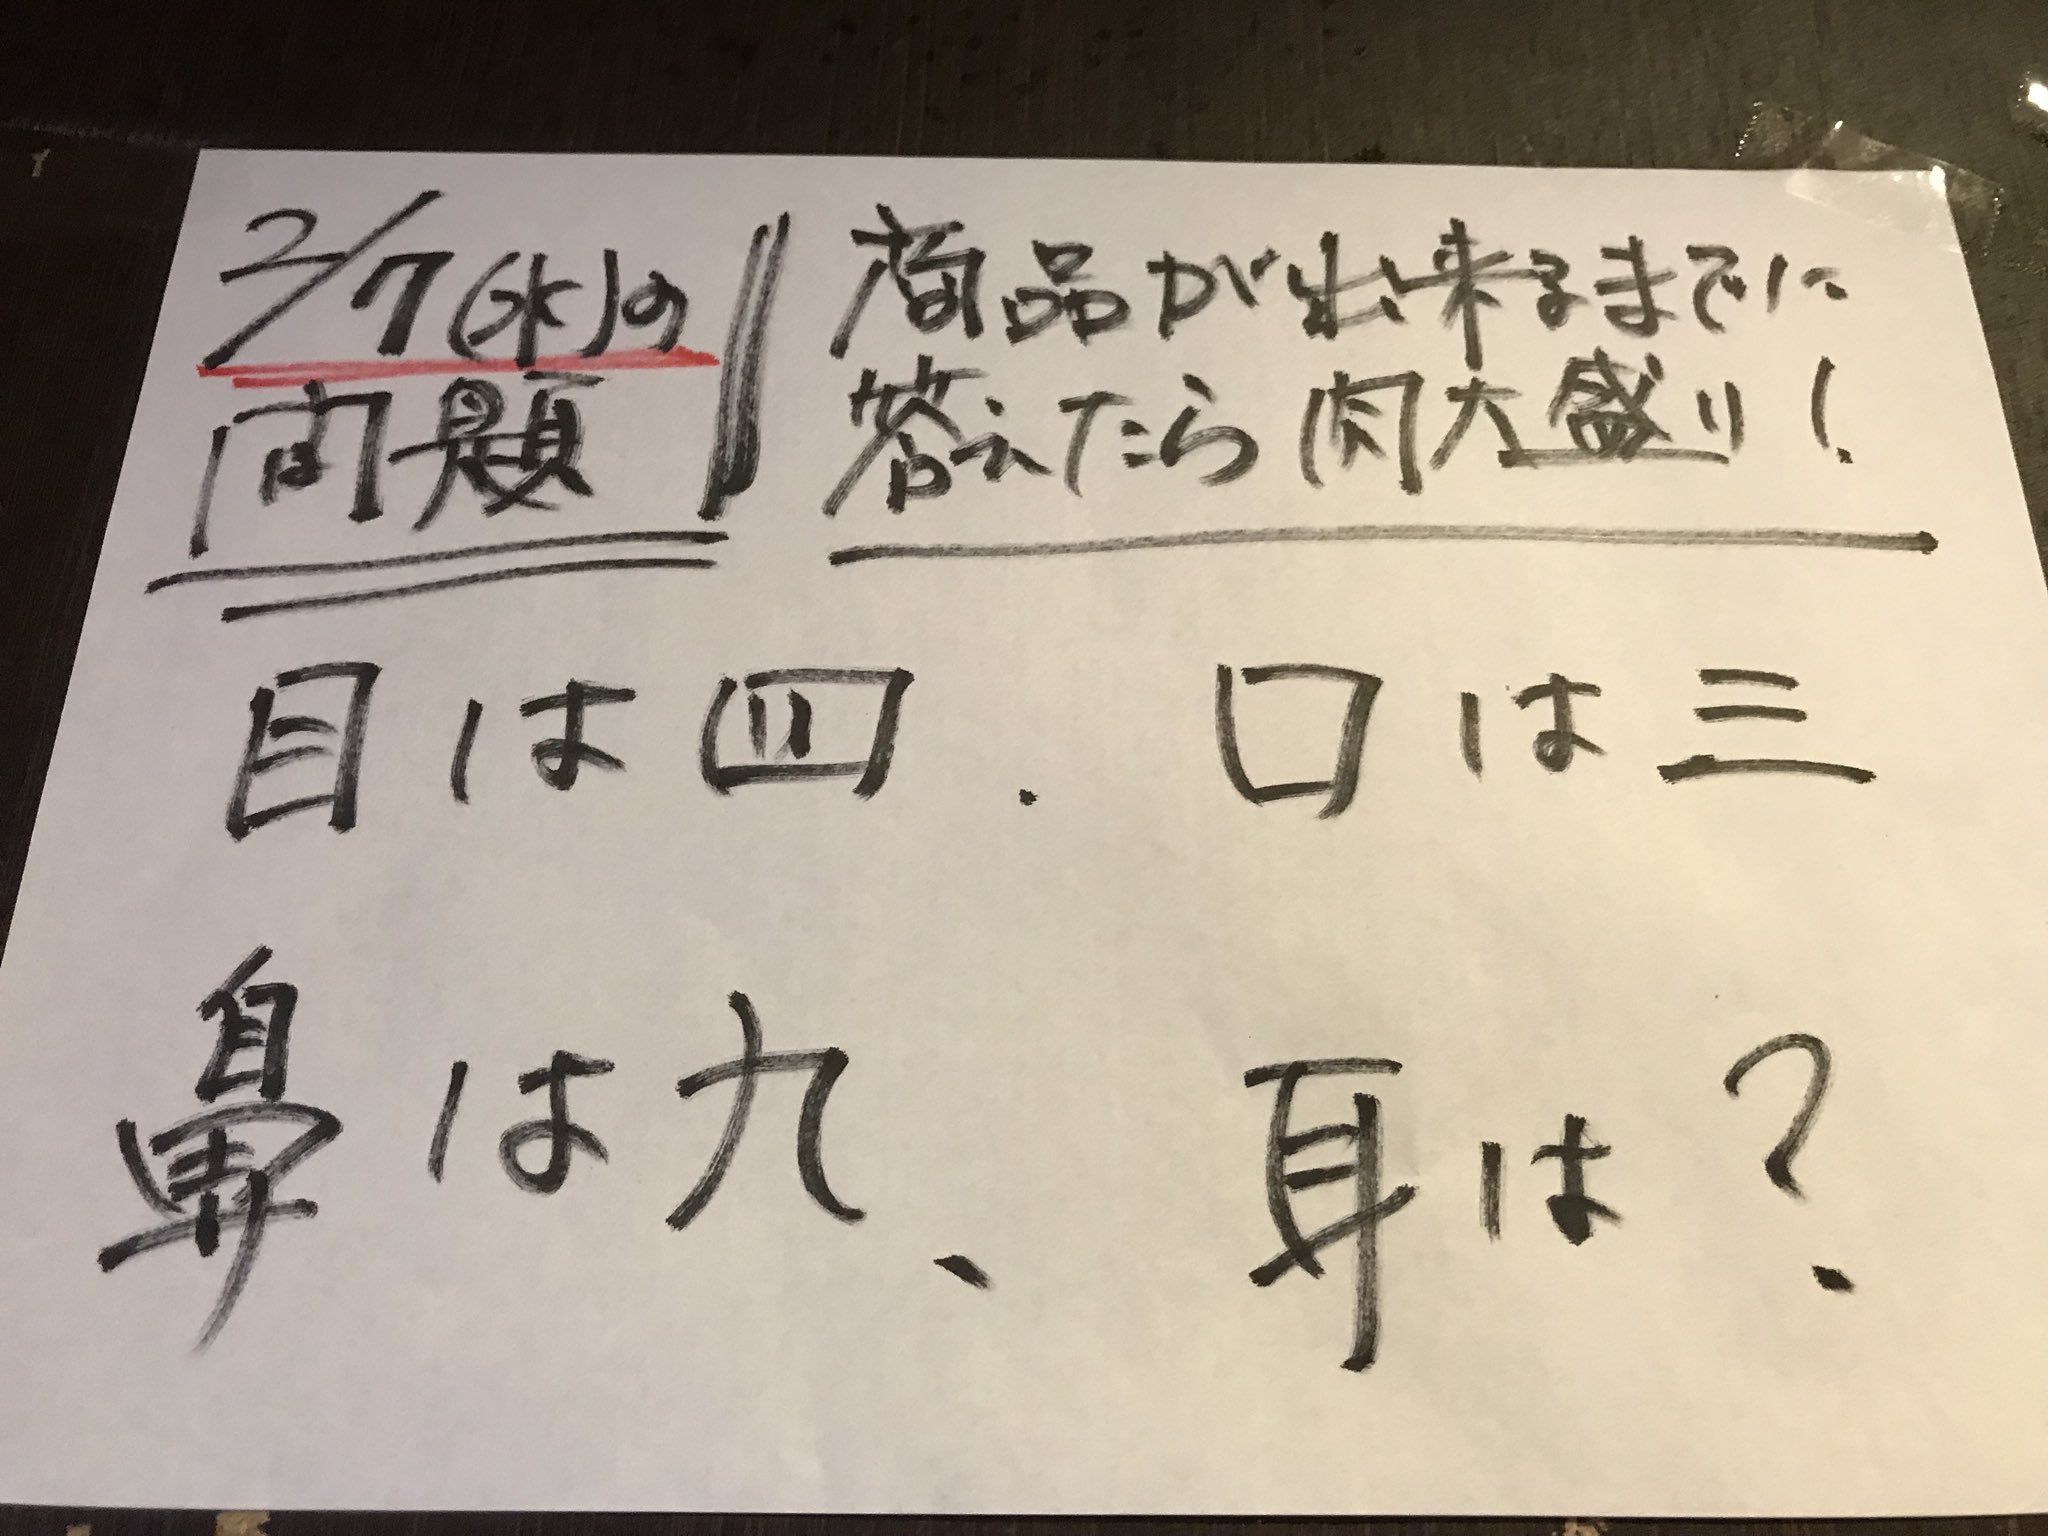 2/7(水)の
問題
商品が出来るまでに
答えたら肉大盛り!
目は四. 口は三
鼻は九、 耳は?